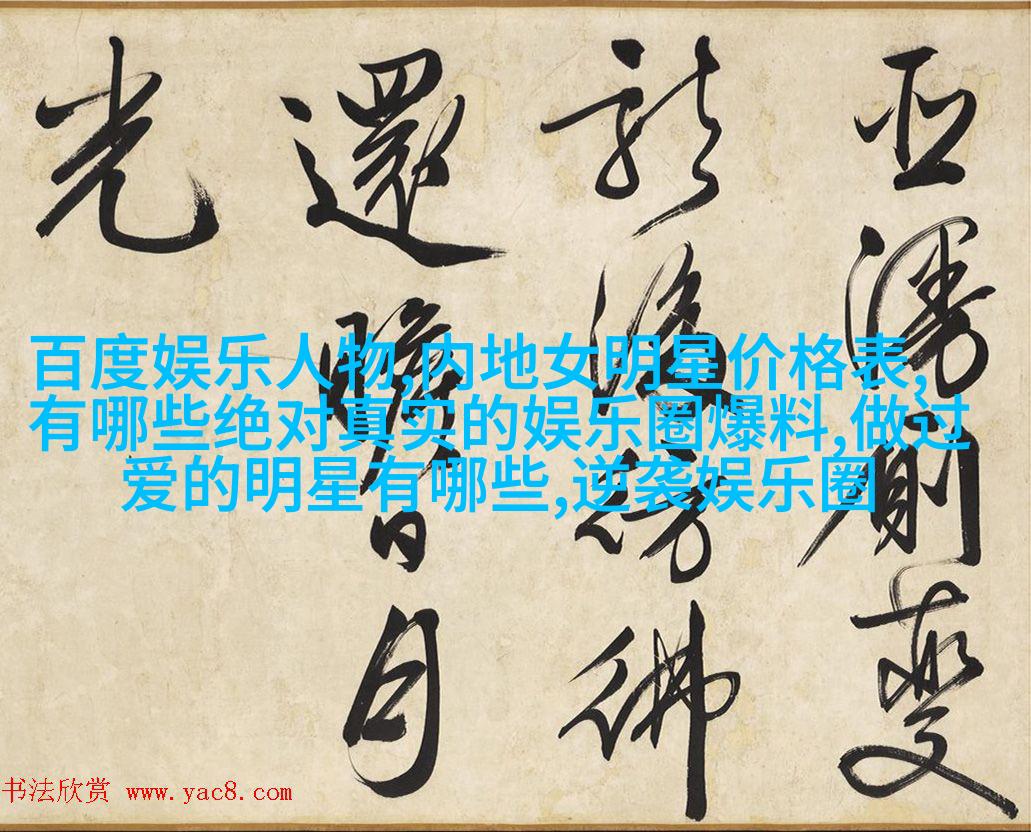 則變
彷彿
還瞻日月
光
百度娱乐人物,内地女明星价格表,
有哪些绝对真实的娱乐圈爆料,做过
爱的明星有哪些,逆袭娱乐圈
书法欣赏 www.yac8.com